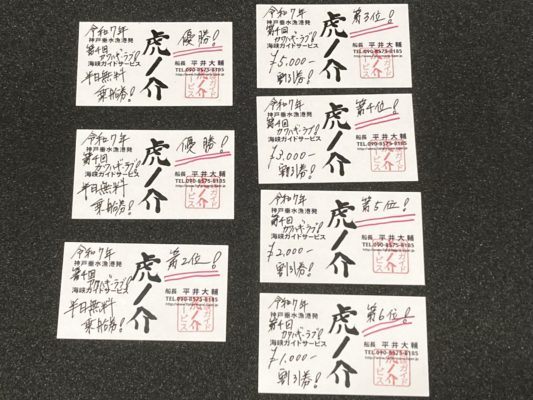 令和7年
神戸垂水漁港発
第4回
カワハギ・ラブ!
海峡ガイドサービス
半日無料
乗船券!
虎ノ介
優勝!
船長 平井大輔
TEL.090-8575-8185
令和7年
神戸垂水漁港発
第4回
カワハギ・ラブ!
海峡ガイドサービス
半日無料
乗船券!
虎ノ介
優勝!
船長 平井大輔
TEL.090-8575-8185
令和7年
神戸垂水漁港発
第4回
カワハギ・ラブ!
海峡ガイドサービス
半日無料
乗船券!
虎ノ介
第2位!
船長 平井大輔
TEL.090-8575-8185
令和7年
神戸垂水漁港発
第4回
カワハギ・ラブ!
海峡ガイドサービス
¥5,000-
割引券!
虎ノ介
第3位!
船長 平井大輔
TEL.090-8575-8185
令和7年
神戸垂水漁港発
第4回
カワハギ・ラブ!
海峡ガイドサービス
¥3,000-
割引券!
虎ノ介
第4位!
船長 平井大輔
TEL.090-8575-8185
令和7年
神戸垂水漁港発
第4回
カワハギ・ラブ!
海峡ガイドサービス
¥2,000-
割引券!
虎ノ介
第5位!
船長 平井大輔
TEL.090-8575-8185
令和7年
神戸垂水漁港発
第4回
カワハギ・ラブ!
海峡ガイドサービス
¥1,000-
割引券!
虎ノ介
第6位!
船長 平井大輔
TEL.090-8575-8185